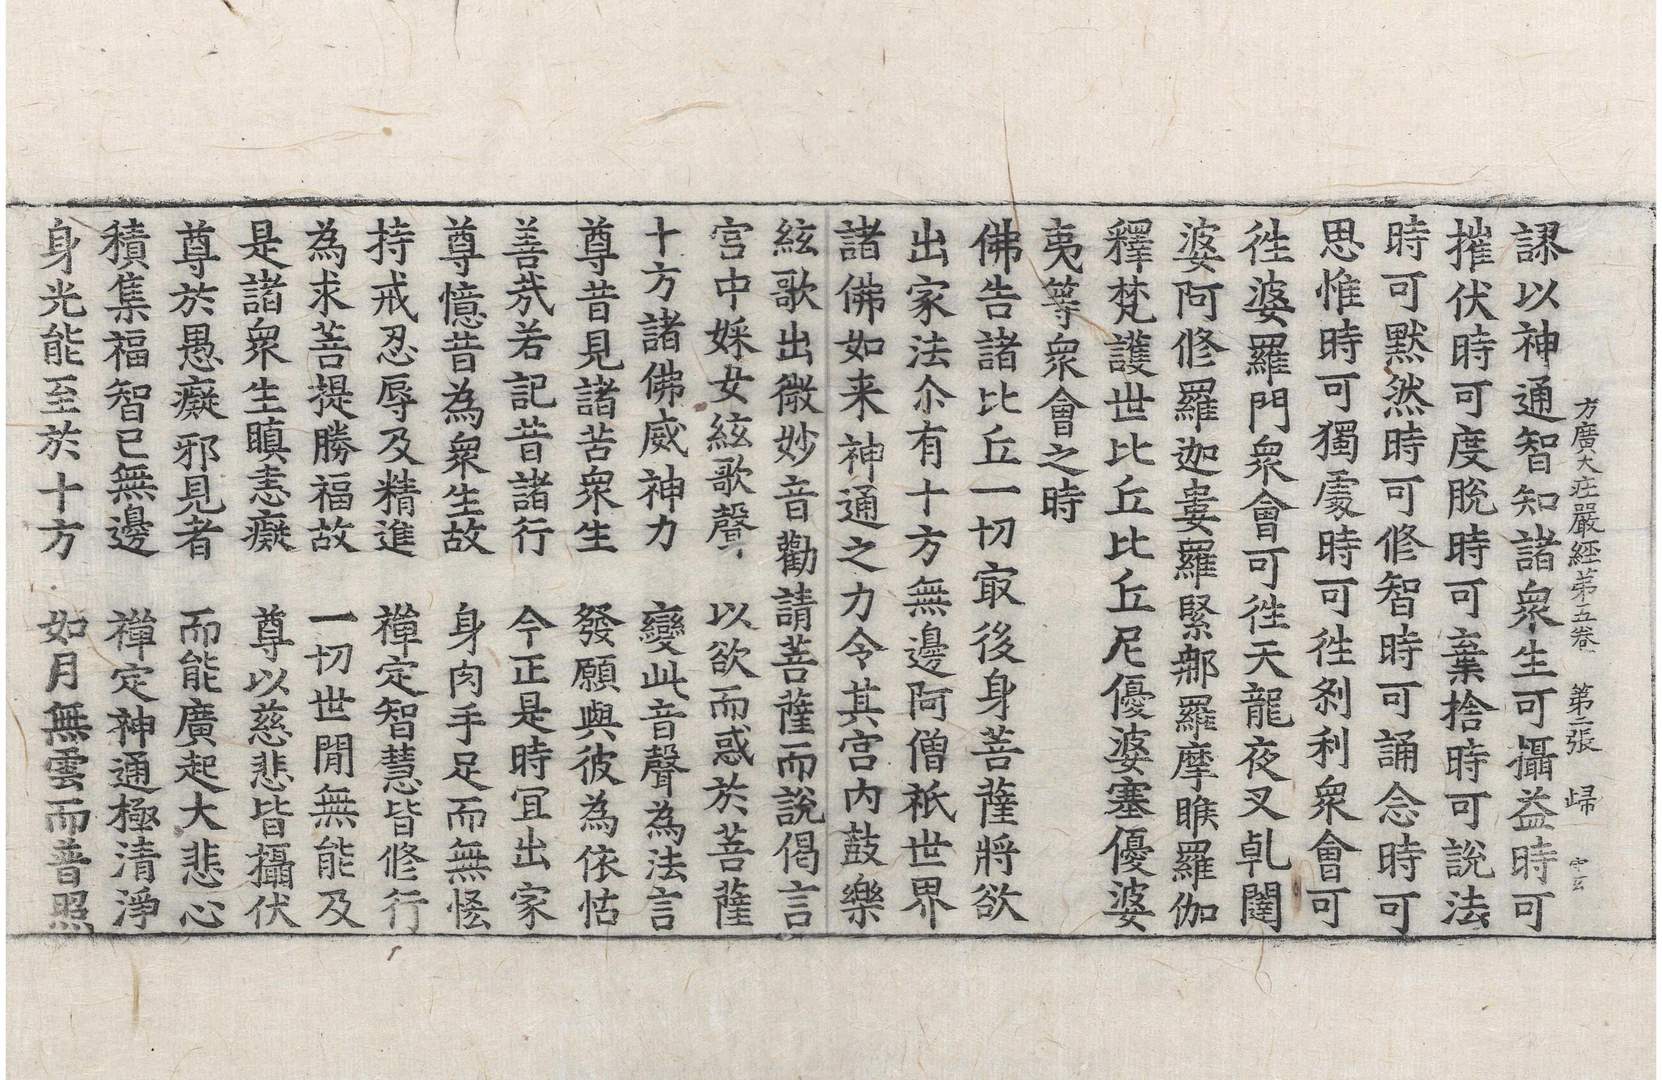 方廣大庄嚴經苐五卷　第二張　㱕　守玄
謬以神通智知諸衆生可攝益時可
摧伏時可度脫時可棄捨時可說法
時可默然時可修智時可誦念時可
思惟時可獨處時可徃刹利衆會可
徃婆羅門衆會可徃天龍夜叉乹闥
婆阿修羅迦婁羅緊那羅摩睺羅伽
釋梵護世比丘比丘尼優婆塞優婆
夷等衆會之時
佛告諸比丘一切㝡後身菩薩將欲
出家法尒有十方無邊阿僧祇世界
諸佛如来神通之力令其宫内鼓樂
絃歌出微妙音勸請菩薩而說偈言
宫中婇女絃歌聲　以欲而惑於菩薩
十方諸佛威神力　變此音聲為法言
尊昔見諸苦衆生　發願與彼為依怙
善㢤若記昔諸行　今正是時冝出家
尊憶昔為衆生故　身肉手足而無悋
持戒忍辱及精進　禪定智慧皆修行
為求菩提勝福故　一切世閒無能及
是諸衆生瞋恚癡　尊以慈悲皆攝伏
尊於愚癡邪見者　而能廣起大悲心
積集福智已無邊　禪定神通極清淨
身光能至於十方　如月無雲而普照